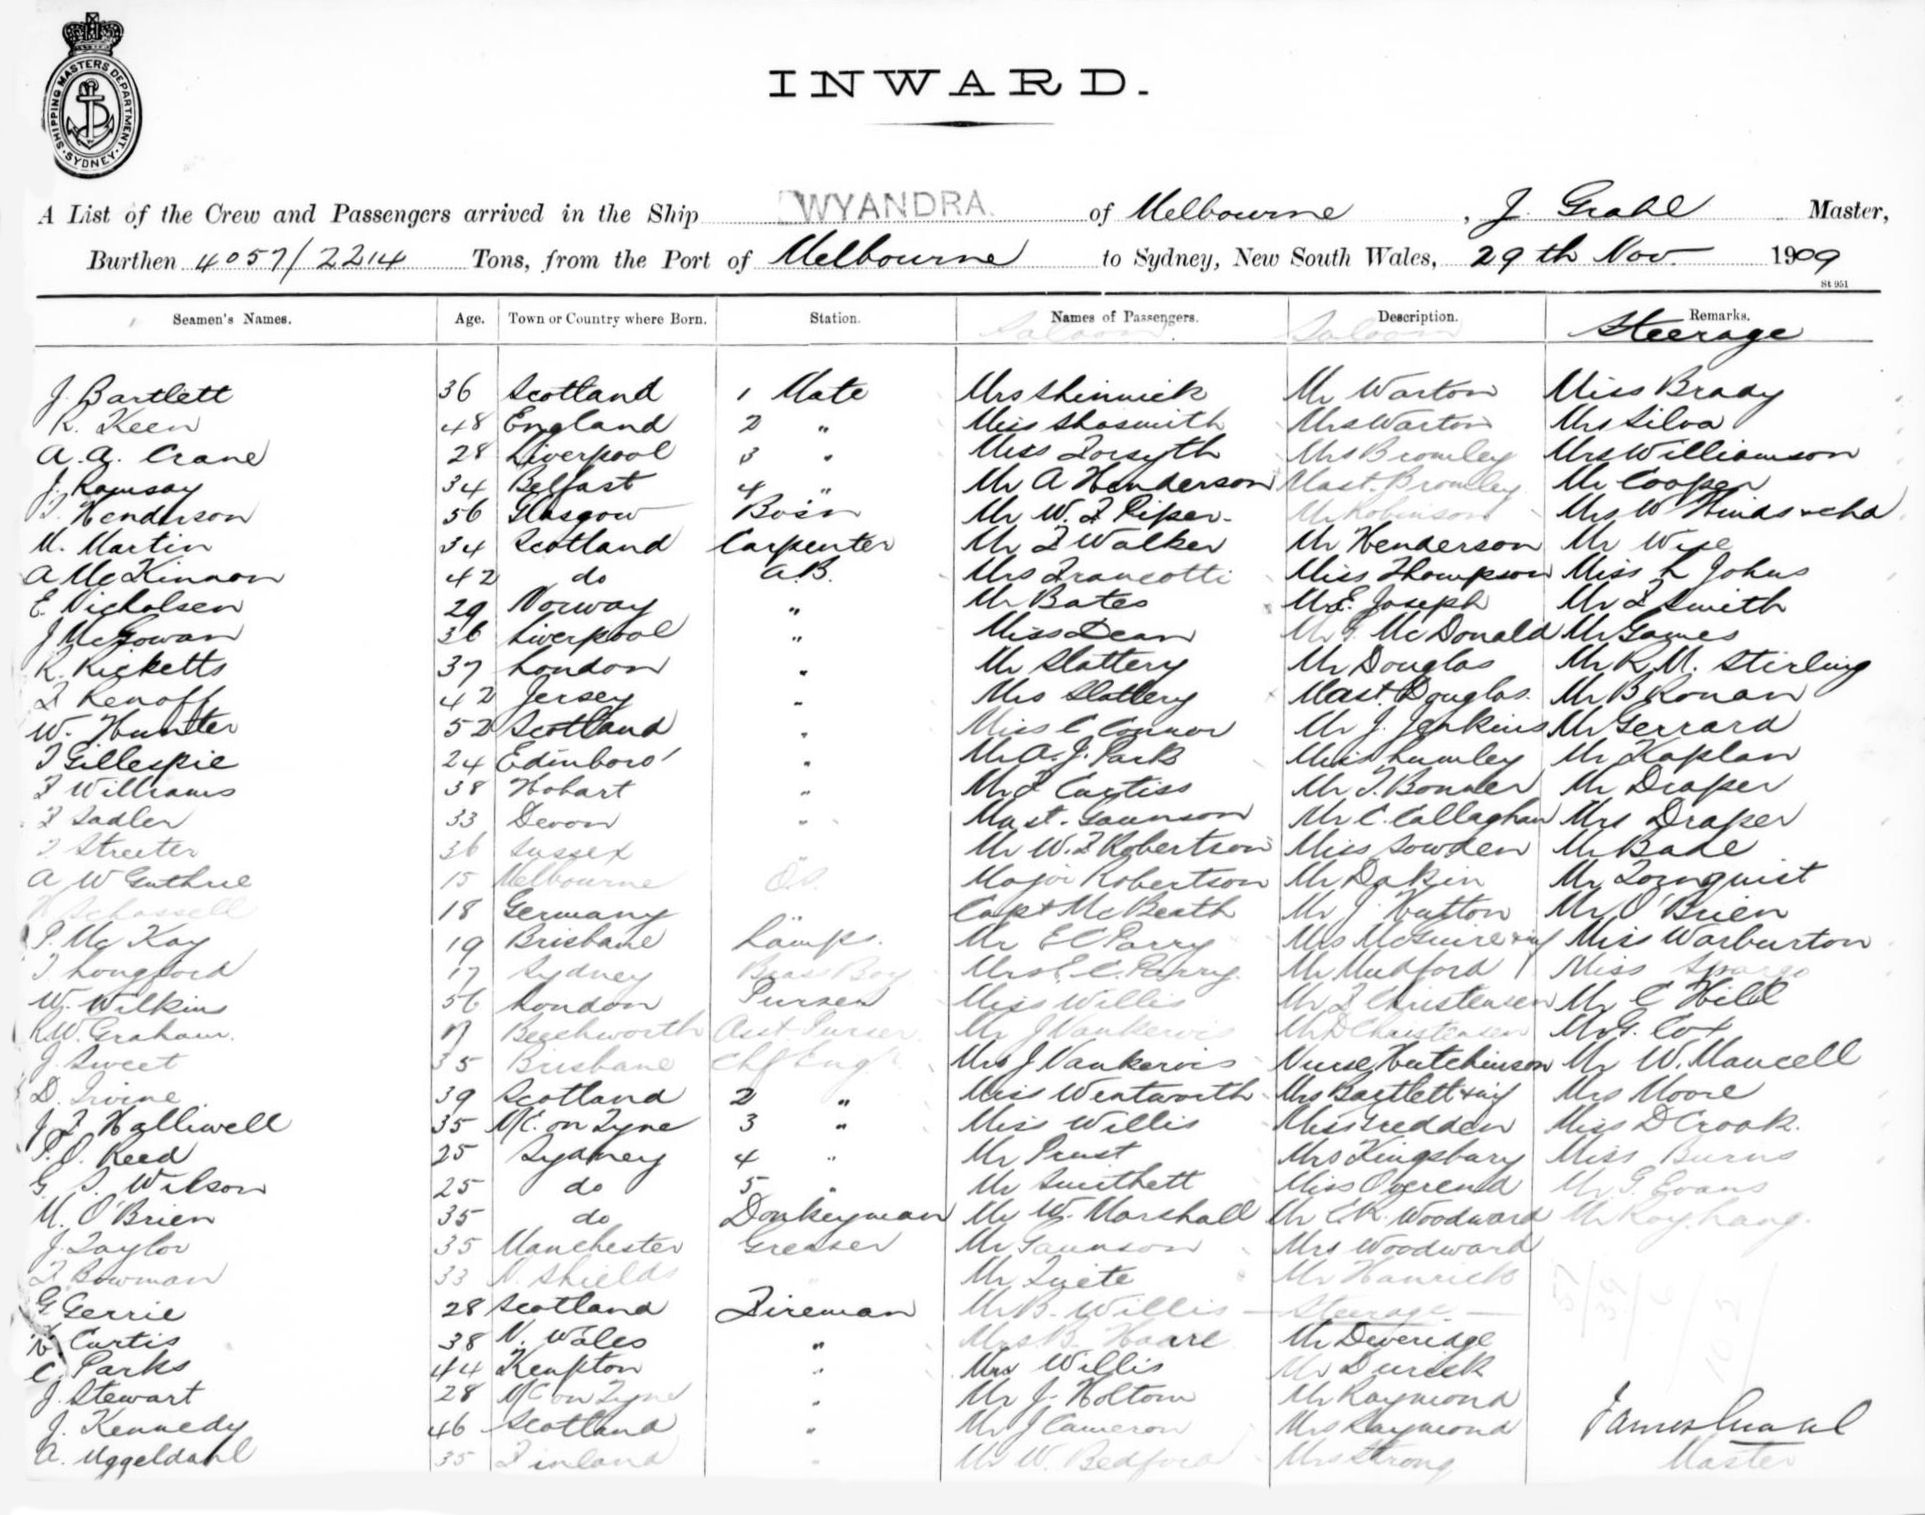 SHIPPING MASTERS DEPARTMENT · SYDNEY ·
INWARD.
A List of the Crew and Passengers arrived in the Ship WYANDRA. of Melbourne, J. Grahl Master,
Burthen 4057/2214 Tons, from the Port of Melbourne to Sydney, New South Wales, 29th Nov. 1909
St 951
Seamen's Names. Age. Town or Country where Born. Station. Names of Passengers. Description. Remarks.
Saloon Saloon Steerage
J. Bartlett 36 Scotland 1 Mate Mrs Shinnick Mr Warton Miss Brady
R. Keen 48 England 2 " Miss Shasmith Mrs Warton Mrs Silva
A. A. Crane 28 Liverpool 3 " Miss Forsyth Mrs Bromley Mrs Williamson
J. Ramsay 34 Belfast 4 " Mr A Henderson Mast. Bromley Mr Cooper
T. Henderson 56 Glasgow Bos'n Mr W. F Piper Mr Robinson Mrs W Hinds & chd
M. Martin 34 Scotland Carpenter Mr F Walker Mr Henderson Mr Wise
A McKinnon 42 do A.B. Mrs Francotti Miss Thompson Miss L Johns
E. Nicholsen 29 Norway " Mr Bates Mr E. Joseph Mr F Smith
J McGowan 36 Liverpool " Miss Dean Mr McDonald Mr Games
R. Ricketts 37 London " Mr Slattery Mr Douglas Mr R. M. Stirling
F Renoff 42 Jersey " Mrs Slattery Mast. Douglas. Mr B Ronan
W. Hunter 52 Scotland " Miss C Connor Mr J. Jenkins Mr Gerrard
T Gillespie 24 Edinboro' " Mr A. J. Park Miss Lumley Mr Kaplan
F Williams 38 Hobart " Mr F Curtiss Mr T. Bonner Mr Draper
F Sadler 33 Devon " Mast. Gaunson Mr C. Callaghan Mrs Draper
F Streeter 36 Sussex Mr W. F Robertson Miss Sowden Mr Bade
A W Guthrie 15 Melbourne O.S. Major Robertson Mr Dakin Mr Tornquist
H Schassell 18 Germany " Capt McBeath Mr J Hutton Mr O'Brien
P. McKay 19 Brisbane Lamps. Mr E C Parry Mrs McGuire & inf Miss Warburton
T Longford 17 Sydney Brass Boy Mrs E. C. Parry. Mr Mudford Miss Spargo
W. Wilkins 56 London Purser Miss Willis Mr F Christensen Mr C Hild
R W. Graham. Beechworth Asst. Purser. Mr J Vankervis Mr D Christensen Mr G. Cox
J. Sweet 35 Brisbane Chf Engr Mrs J Vankervis Nurse Hutchinson Mr W. Maucell
D. Irvine 39 Scotland 2 " Miss Wentworth Mrs Bartlett & inf Mrs Moore
J F Halliwell 35 N/C. on Tyne 3 " Miss Willis Miss Gredden Miss D Crook.
P. O. Reed 25 Sydney 4 " Mr Prust Mrs Kingsbury Miss Burns
G. S. Wilson 25 do 5 " Mr Smithett Miss Overend Mr G. Evans
M. O'Brien 35 do Donkeyman Mr W. Marshall Mr C. R. Woodward Mr Roy Lang.
J. Taylor 35 Manchester Greaser Mr Gaunson Mrs Woodward
F Bowman 33 N. Shields " Mr Tuite Mr Hanrick
G. Gerrie 28 Scotland Fireman Mr B. Willis — Steerage —
Curtis 38 N. Wales " Mrs B. Hoare Mr Deveridge
C. Parks 44 Kempton " Mrs Willis Mr Durick
J. Stewart 28 N/C on Tyne " Mr J. Holtom Mr Raymond
J. Kennedy 46 Scotland " Mr J Cameron Mrs Raymond James Grahl
A. Uggeldahl 35 Finland " Mr W. Bedford Mrs Strong Master